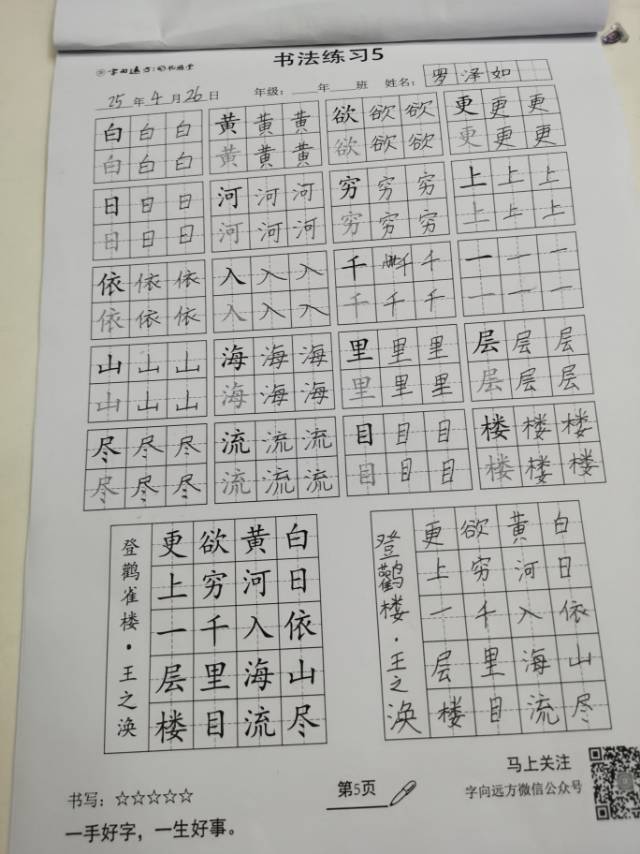 书法练习5
字向远方
25年4月26日 年级：____年____班 姓名：罗泽如
白白白 黄黄黄 欲欲欲 更更更
白白白 黄黄黄 欲欲欲 更更更
日日日 河河河 穷穷穷 上上上
日日日 河河河 穷穷穷 上上上
依依依 入入入 千千千 一一一
依依依 入入入 千千千 一一一
山山山 海海海 里里里 层层层
山山山 海海海 里里里 层层层
尽尽尽 流流流 目目目 楼楼楼
尽尽尽 流流流 目目目 楼楼楼
白日依山尽
黄河入海流
欲穷千里目
更上一层楼
登鹳雀楼·王之涣
白日依山尽
黄河入海流
欲穷千里目
更上一层楼
登鹳楼·王之涣
书写：☆☆☆☆☆
一手好字，一生好事。
第5页
马上关注
字向远方微信公众号